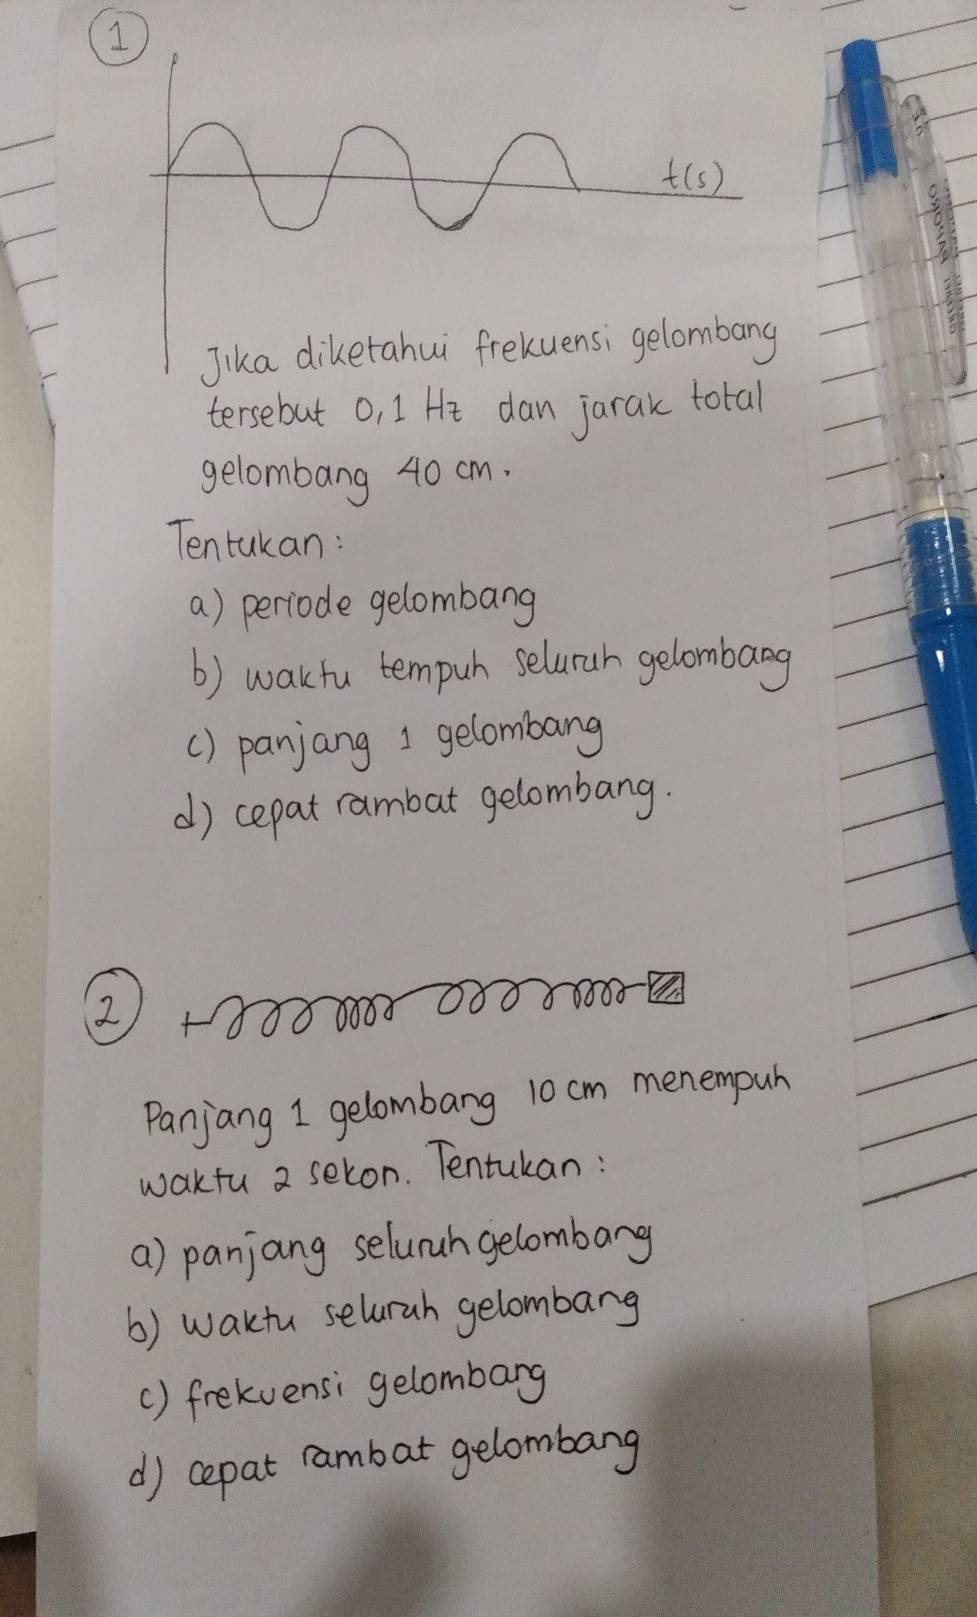 1
t(s)
Jika diketahui frekuensi gelombang
tersebut 0,1 Hz dan jarak total
gelombang 40 cm.
Tentukan:
a) periode gelombang
b) waktu tempuh seluruh gelombang
c) panjang 1 gelombang
d) cepat rambat gelombang.
2
Panjang 1 gelombang 10 cm menempuh
waktu 2 sekon. Tentukan:
a) panjang seluruh gelombang
b) waktu seluruh gelombang
c) frekuensi gelombang
d) cepat rambat gelombang